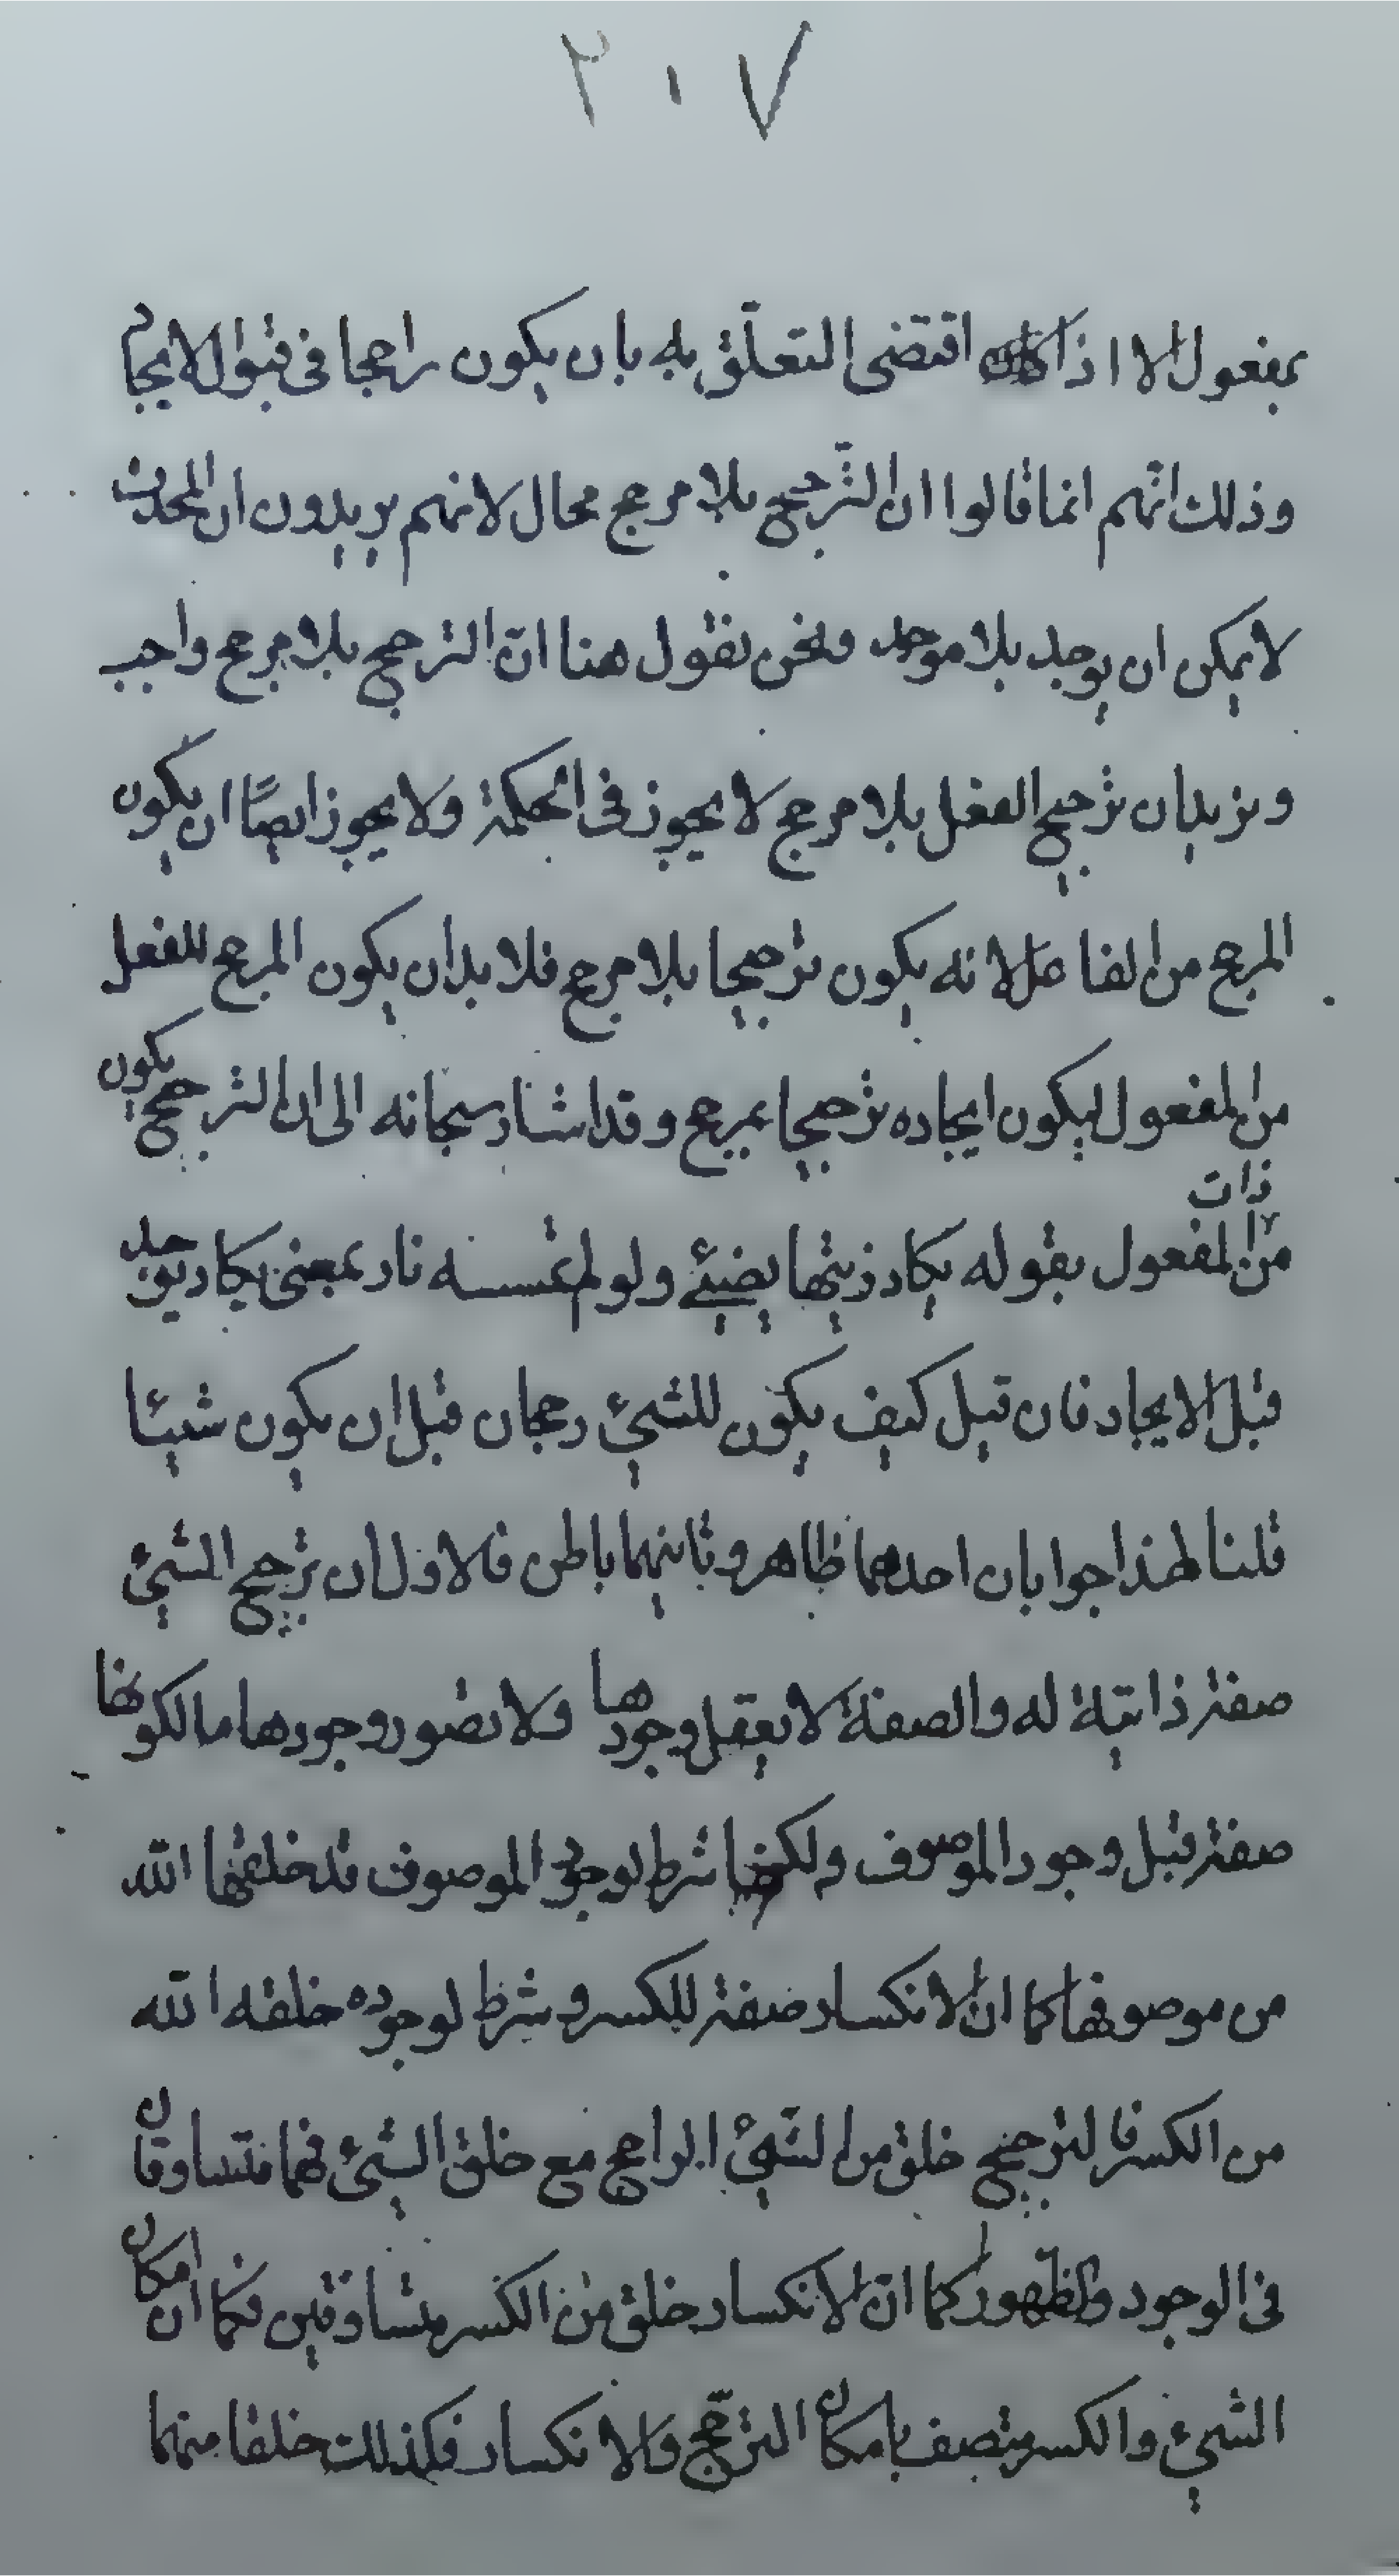 ٣٠٧
بمفعول الا اذا اقتضى التعلّق به بان يكون راجحا فى قبول الايجاد
وذلك انّهم انما قالوا ان الترجيح بلا مرجح محال لانهم يريدون ان المحدث
لا يمكن ان يوجد بلا موجد ونحن نقول هنا انّ الترجيح بلا مرجح واجب
ونريد ان ترجيح الفعل بلا مرجح لا يجوز فى الحكمة ولا يجوز ايضًا ان يكون
المرجح من الفاعل لانه يكون ترجيحا بلا مرجح فلا بد ان يكون المرجح للفعل
من المفعول ليكون ايجاده ترجيحا بمرجح وقد اشار سبحانه الى ان الترجيح يكون
من ذات المفعول بقوله يكاد زيتها يضيئ ولو لم تمسسه نار بمعنى يكاد يوجد
قبل الايجاد فان قيل كيف يكون للشئ رجحان قبل ان يكون شيئا
قلنا لهذا جوابان احدهما ظاهر وثانيهما باطن فالاول ان ترجيح الشئ
صفة ذاتية له والصفة لا يعقل وجودها ولا تصور وجودها مالكونها
صفة قبل وجود الموصوف ولكنها شرط لوجود الموصوف قد خلقها الله
من موصوفها كما ان الانكسار صفة للكسر وشرط لوجوده خلقه الله
من الكسر فالترجيح خلق من الشئ الراجح مع خلق الشئ فهما متساوقان
فى الوجود والظهور كما انّ الانكسار خلق من الكسر متساوقين فكما ان امكان
الشئ والكسر متصف بامكان الترجّح والانكسار فكذلك خلقا منهما